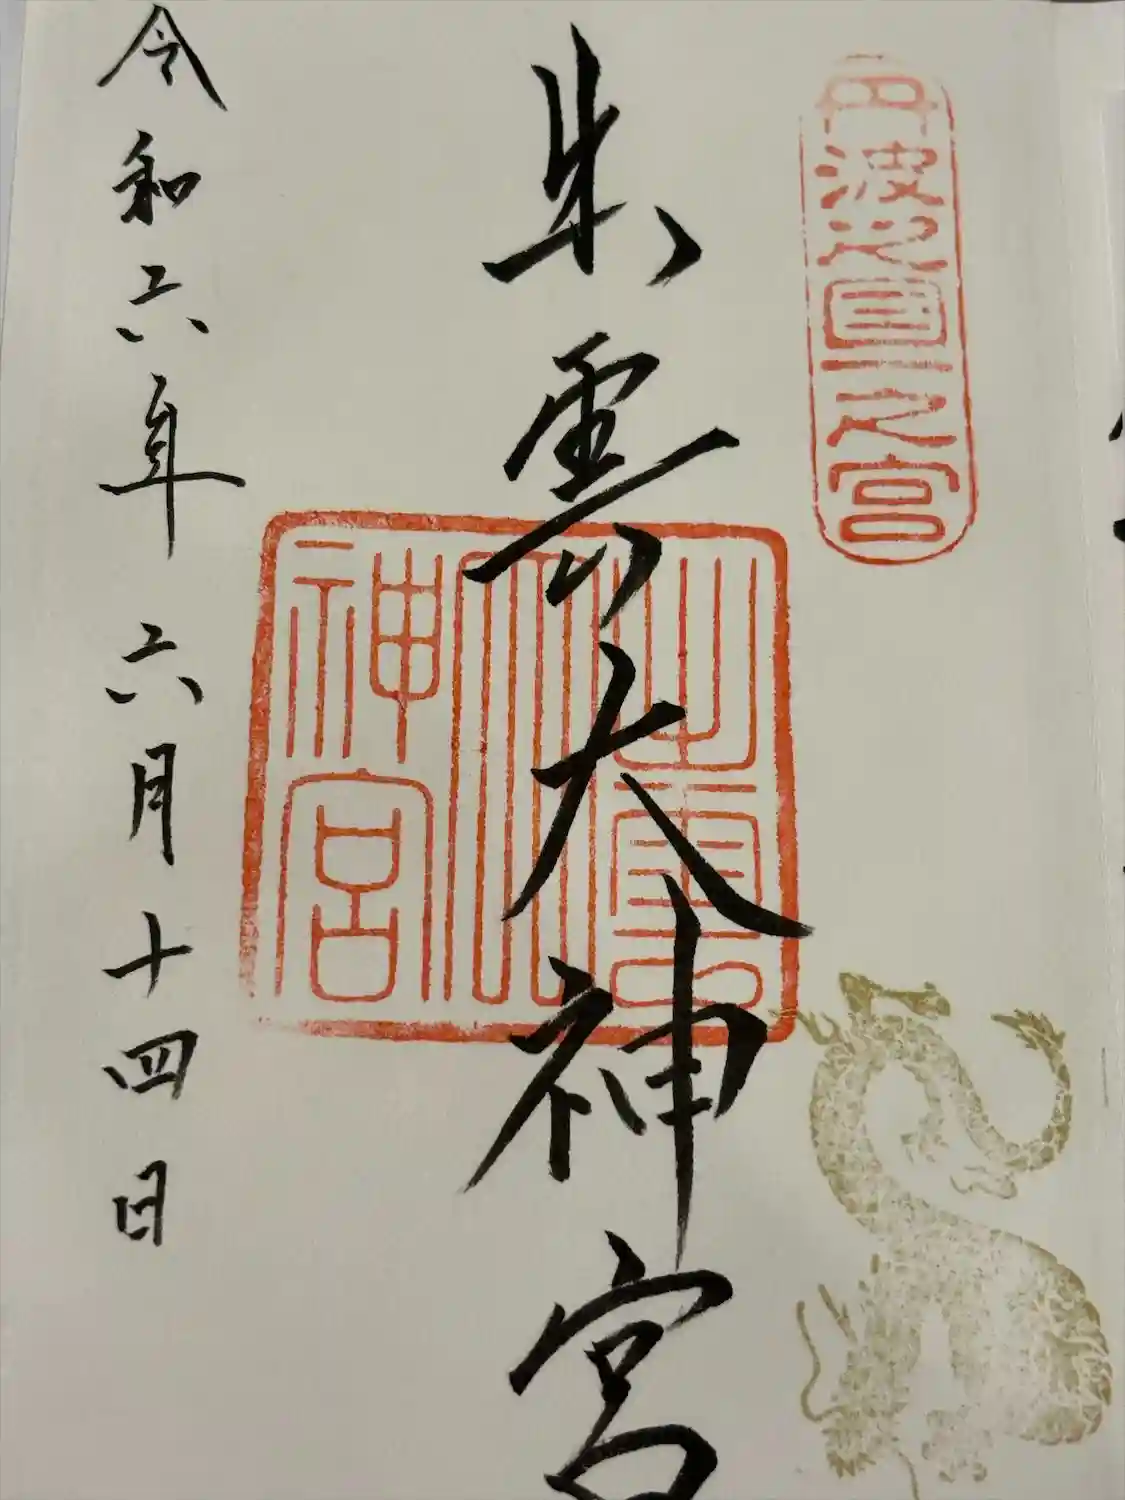 丹波之國一之宮
出雲大神宮
出雲大神宮
令和六年六月十四日